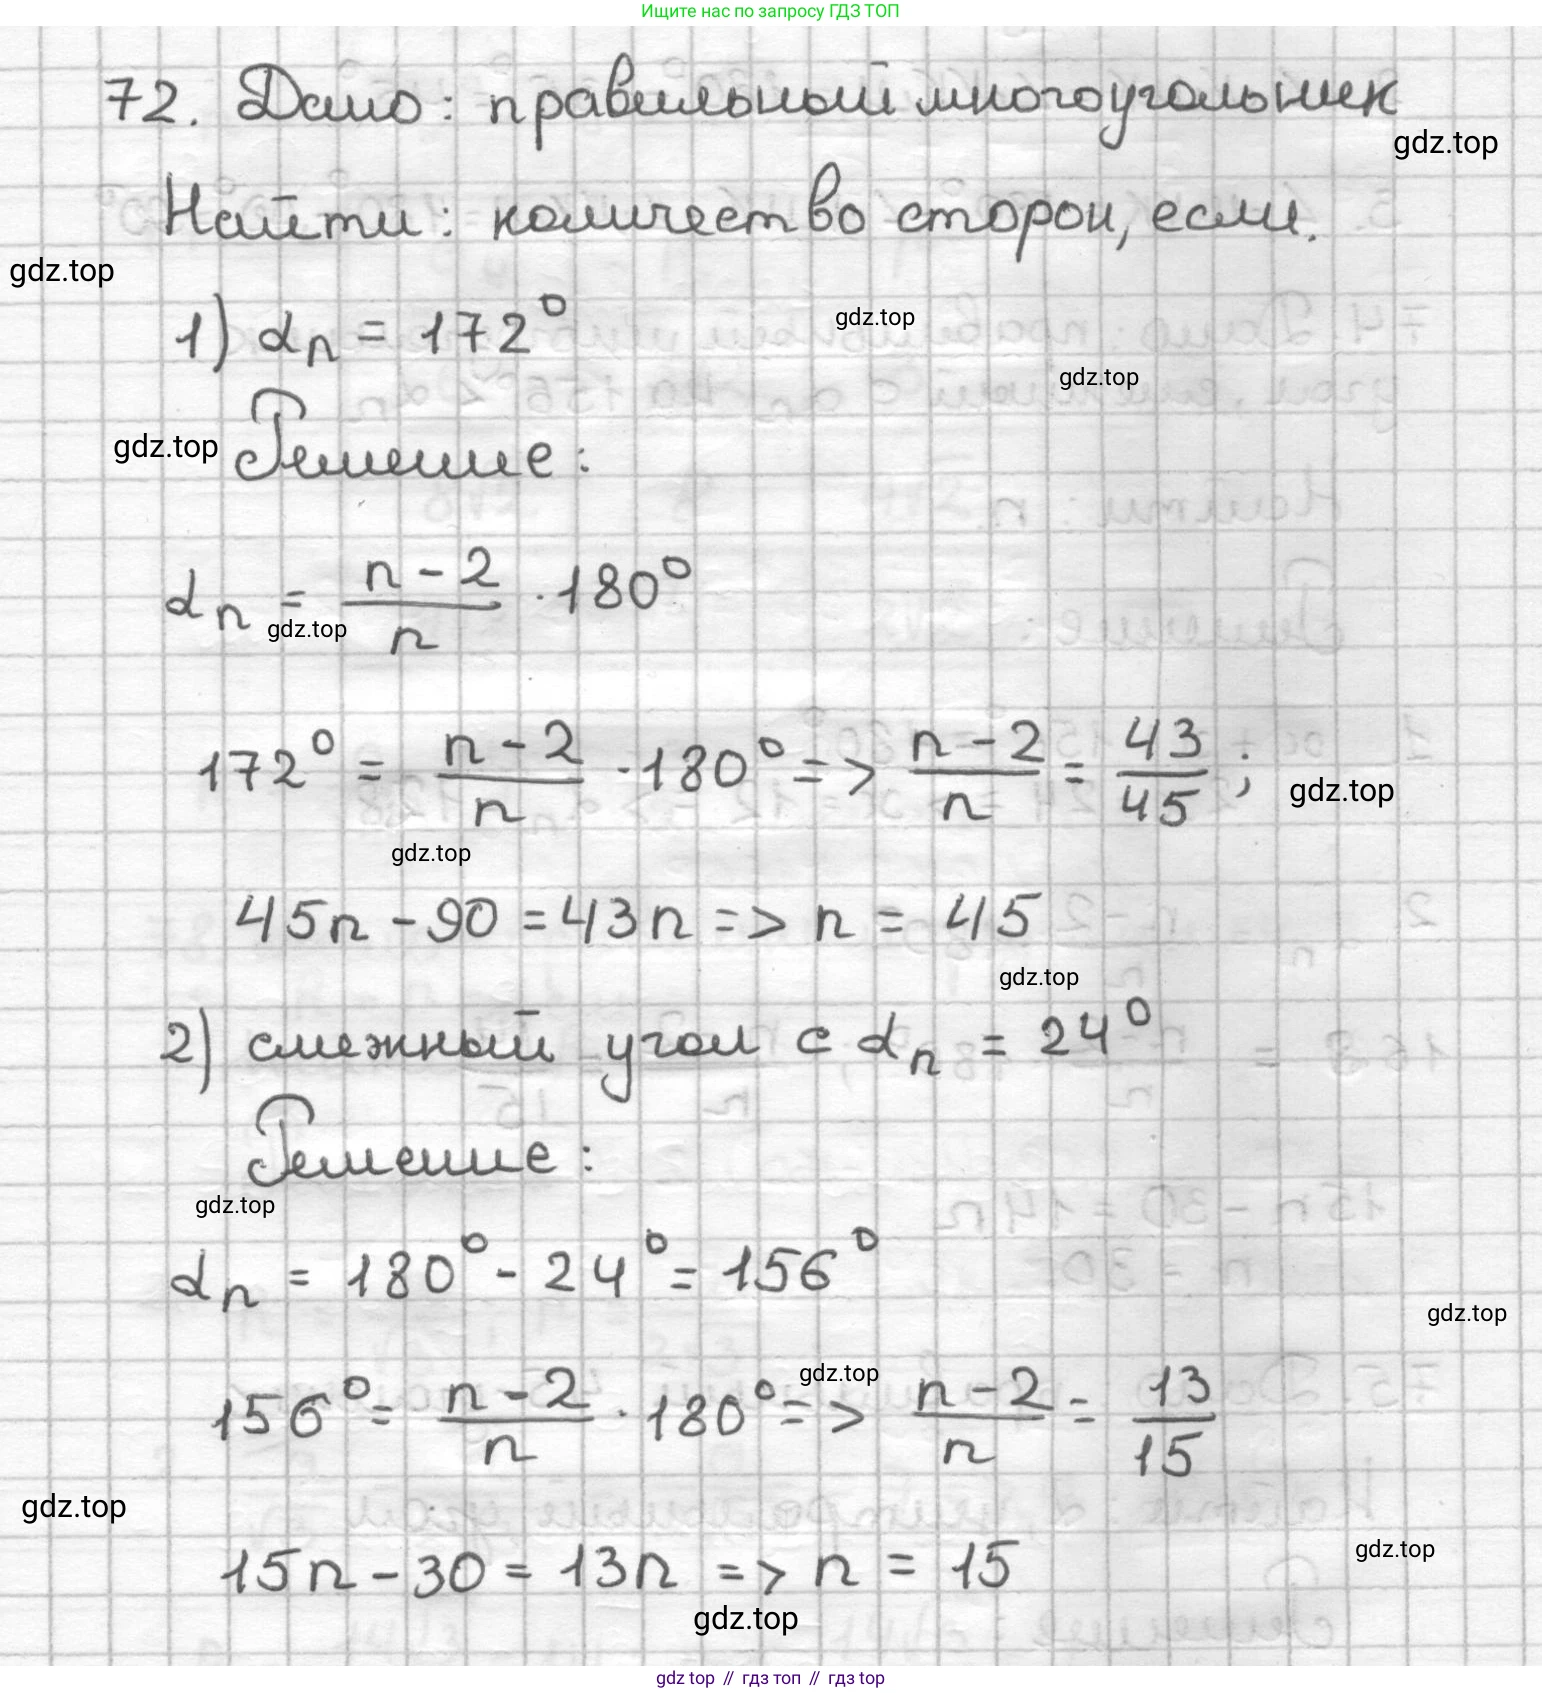 Ищите нас по запросу ГДЗ ТОП
72. Дано: правильный многоугольник
gdz.top
Найти: количество сторон, если.
gdz.top
1) αn = 172°
gdz.top
gdz.top
gdz.top Решение:
αn = (n-2)/n · 180°
gdz.top
172° = (n-2)/n · 180° => (n-2)/n = 43/45;
gdz.top
gdz.top
45n - 90 = 43n => n = 45
gdz.top
2) смежный угол с αn = 24°
Решение:
gdz.top
αn = 180° - 24° = 156°
gdz.top
gdz.top
156° = (n-2)/n · 180° => (n-2)/n = 13/15
gdz.top
15n - 30 = 13n => n = 15
gdz.top
gdz.top
gdz top // гдз топ // gdz top